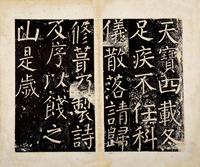 天寶四載冬
足疾不任科
儀散落請歸
脩葺乃製詩
及序以餞之
山是歲